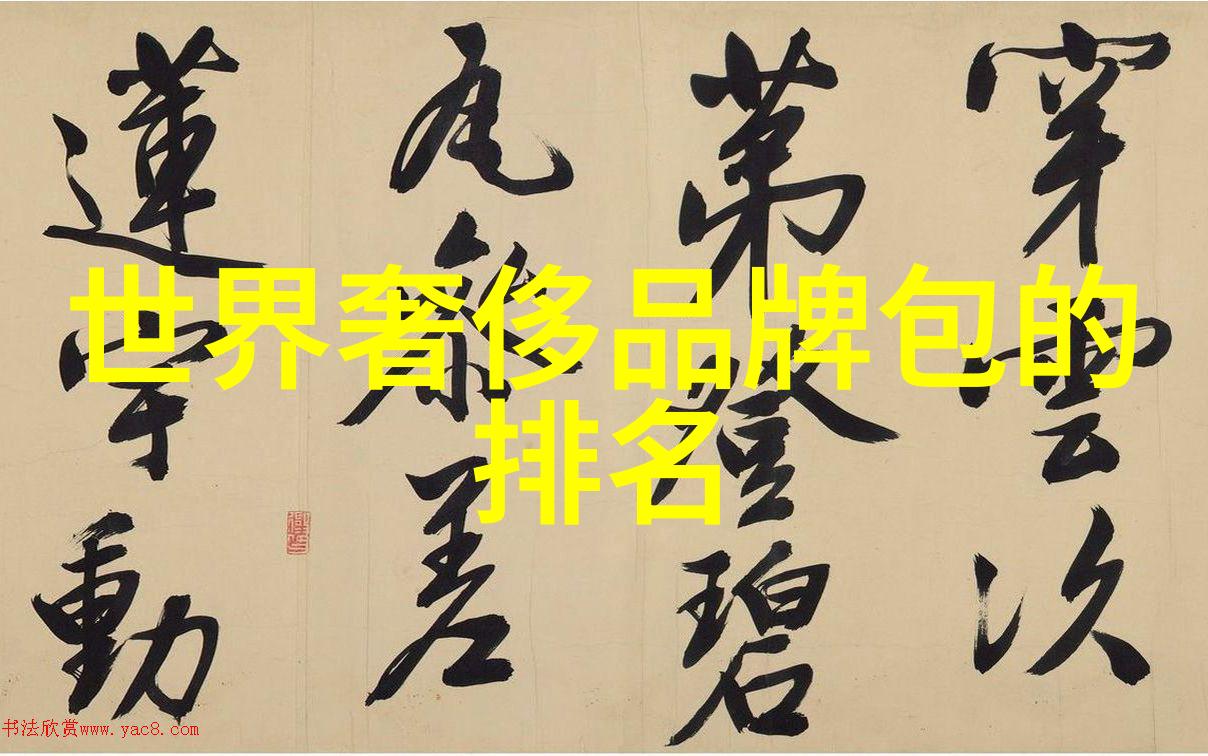 穿雲次
第發碧
瓦參差
蓮宇動
世界奢侈品牌包的
排名
书法欣赏www.yac8.com